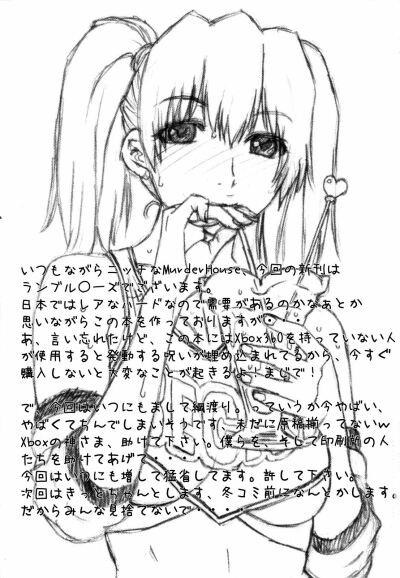 いつもながらニッチなMurderHouse、今回の新刊は
ランブル〇ーズでございます。
日本ではレアなハードなので需要があるのかなぁとか
思いながらこの本を作っておりますが
あ、言い忘れたけど、この本にはXbox360を持っていない人
が使用すると発動する呪いが埋め込まれてるから、今すぐ
購入しないと大変なことが起きるよ！まじで！
で、今回はいつにもまして綱渡り。っていうか今やばい、
やばくてちんでしまいそうです、未だに原稿揃ってないw
Xboxの神さま、助けて下さい。僕らを、そして印刷所の人
たちを助けてあげて・・・
今回はいつにも増して猛省してます。許して下さい。
次回はきっとちゃんとします、冬コミ前になんとかします。
だからみんな見捨てないで・・・・